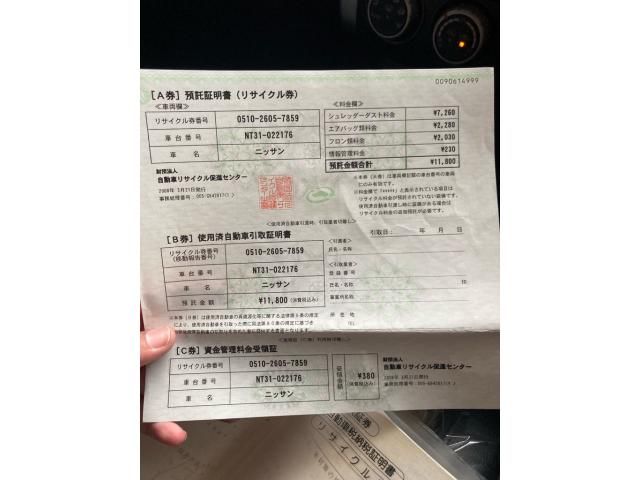 0090614999
[A券] 預託証明書（リサイクル券）
≪車両欄≫
リサイクル券番号 0510-2605-7859
車台番号 NT31-022176
車名 ニッサン
≪料金欄≫
シュレッダーダスト料金 ¥7,260
エアバッグ類料金 ¥2,280
フロン類料金 ¥2,030
情報管理料金 ¥230
預託金額合計 ¥11,800
財団法人
自動車リサイクル促進センター
2008年 3月21日発行
[B券] 使用済自動車引取証明書
引取日： 年 月 日
リサイクル券番号
(移動報告番号) 0510-2605-7859
車台番号 NT31-022176
車名 ニッサン
預託金額 ¥11,800 (消費税込み)
≪引渡者≫
氏名・名称
≪引取業者≫
登録番号
氏名・名称 印
事業所名称
所在地
TEL
[C券] 資金管理料金受領証
リサイクル券番号 0510-2605-7859
車台番号 NT31-022176
車名 ニッサン
受領金額 ¥380
(消費税込み)
財団法人
自動車リサイクル促進センター
2008年 3月21日発行
自動車税納税証明書
リサイクル